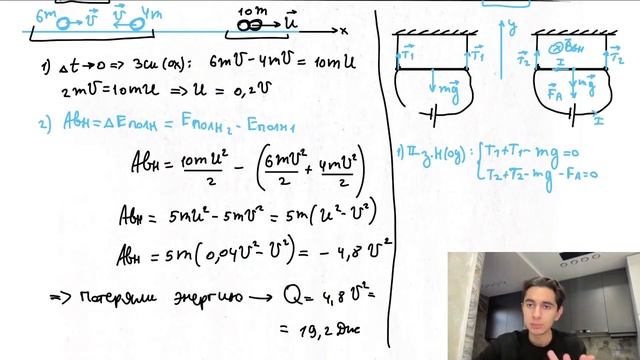 6m v⃗ v⃗ 4m
10m u⃗
x
1) Δt→0 => ЗСИ (ox): 6mV - 4mV = 10mU
2mV = 10mU => U = 0,2V
2) Aвн = ΔEполн = Eполн2 - Eполн1
Aвн = 10mU²/2 - (6mV²/2 + 4mV²/2)
Aвн = 5mU² - 5mV² = 5m(U² - V²)
Aвн = 5m(0,04V² - V²) = - 4,8 V²
=> Потеряли энергию → Q = 4,8 V² =
= 19,2 Дж
y
T⃗1 T⃗1
mg⃗
B⃗вн
I
T⃗2 T⃗2
F⃗A mg⃗
I
1) II з.Н (оy): { T1 + T1 - mg = 0
T2 + T2 - mg - FA = 0